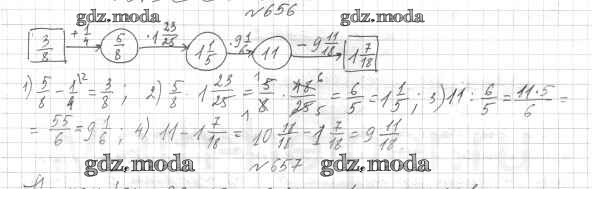 №656
gdz.moda gdz.moda
3/8 + 1/4 → 5/8 · 1 23/25 → 1 1/5 · 9 1/6 → 11 - 9 11/18 → 1 7/18
1) 5/8 - 1/4 \2 = 3/8; 2) 5/8 · 1 23/25 = 5/8 · 48/25 = 6/5 = 1 1/5; 3) 11 : 6/5 = 11·5/6 =
= 55/6 = 9 1/6; 4) 11 - 1 7/18 = 10 11/18 - 1 7/18 = 9 11/18.
gdz.moda №657 gdz.moda